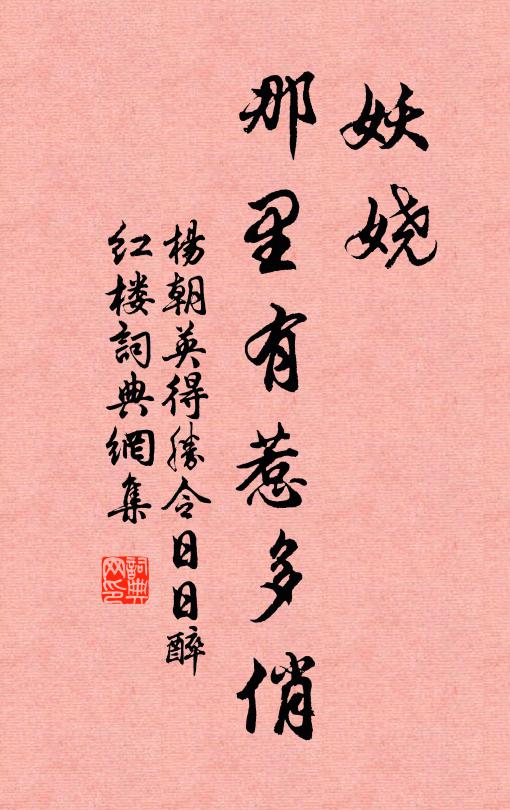 妖娆
那里有惹多俏
杨朝英得胜令日日醉
红楼词典網集
詞典网印